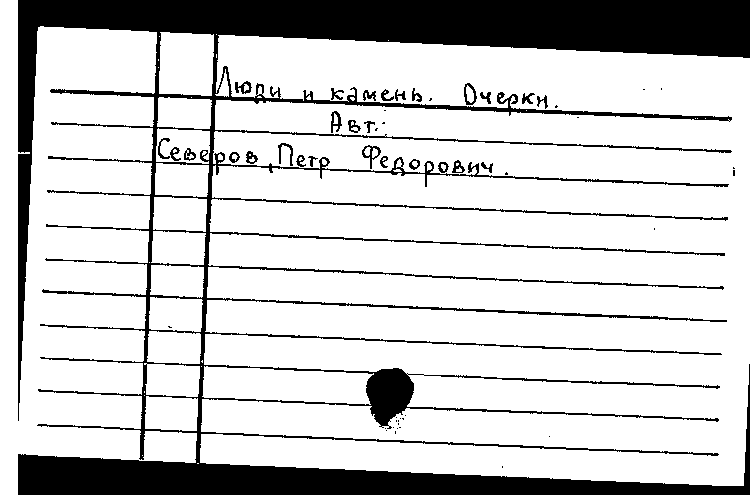 Люди и камень. Очерки.
Авт.:
Северов, Петр Федорович.